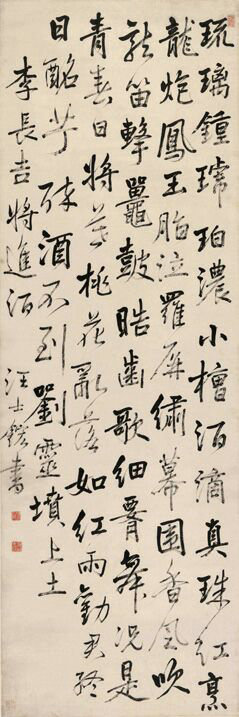 琉璃鍾琥珀濃小槽酒滴真珠紅烹
龍炮鳳玉脂泣羅屏繡幕圍香風吹
龍笛擊鼉鼓皓齒歌細腰舞況是
青春日將暮桃花亂落如紅雨勸君終
日酩酊醉酒不到劉靈墳上土
李長吉將進酒 汪士鋐書